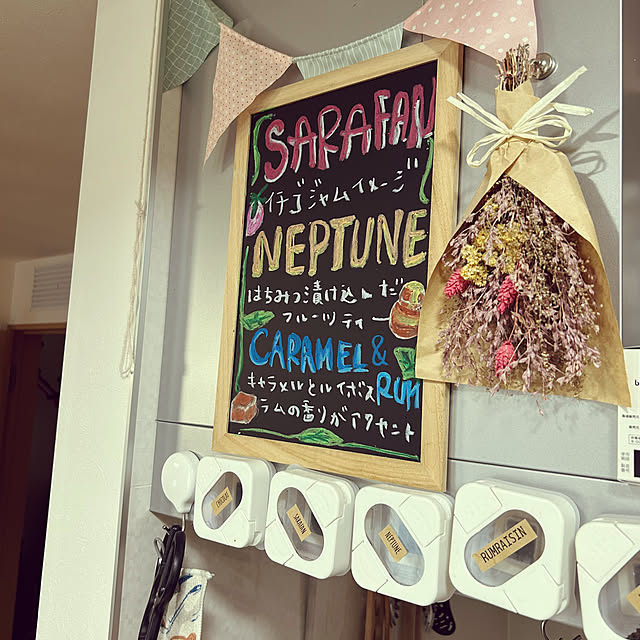 SARAFAN
イチゴジャムイメージ
NEPTUNE
はちみつ漬け込んだ
フルーツティー
CARAMEL & RUM
キャラメルとルイボス
ラムの香りがアクセント
SARAFAN
NEPTUNE
RUMRAISIN